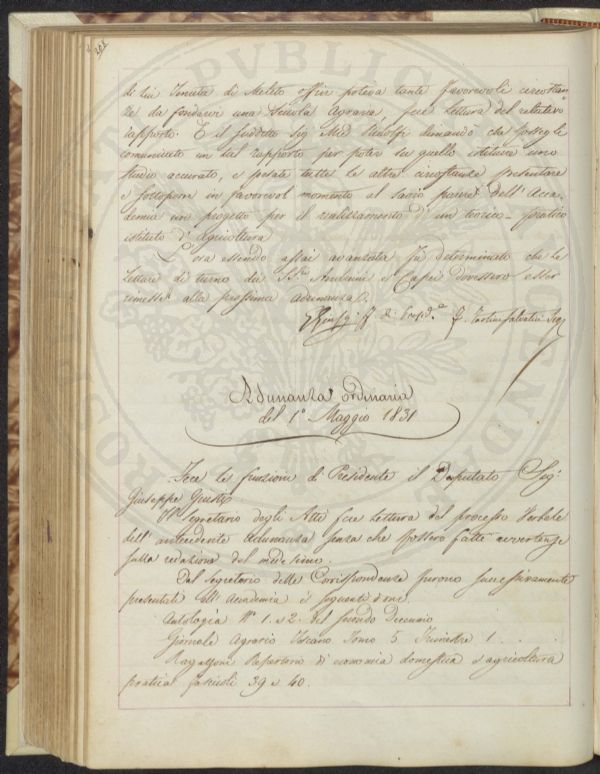 208
di lui Tenuta di Meleto offrir poteva tante favorevoli circostan-
ze da fondarvi una Scuola Agraria, fece lettura del relativo
rapporto. E il suddetto Sig. Ridolfi domandò che fossegli
comunicato un tal rapporto per poter su quello istituire uno
studio accurato, e pesate tutte le altre circostanze presentare
e sottoporre in favorevol momento al savio parere dell'Acca-
demia un progetto per il realizzamento d'un teorico-pratico
istituto d'Agricoltura
L'ora essendo assai avanzata fu determinato che le
Letture di turno dei SS.ri e Capei dovessero esser
rimesse alla prossima adunanza.
ff. di Presid.e F. Tartini Salvatici Seg.
Adunanza ordinaria
del 1° Maggio 1831
Fece le funzioni di Presidente il Deputato Sig.
Giuseppe Giusto
Il Segretario degli Atti fece lettura del processo Verbale
dell'antecedente Adunanza senza che fossero fatte avvertenze
sulla redazione del medesimo.
Dal Segretario delle Corrispondenze furono successivamente
presentati all'Accademia i seguenti doni.
Antologia N° 1. e 2. del secondo Decennio
Giornale Agrario Toscano Tomo 5 Trimestre 1
Ragazzoni Repertorio di economia domestica e agricoltura
pratica fascicoli 39 e 40.